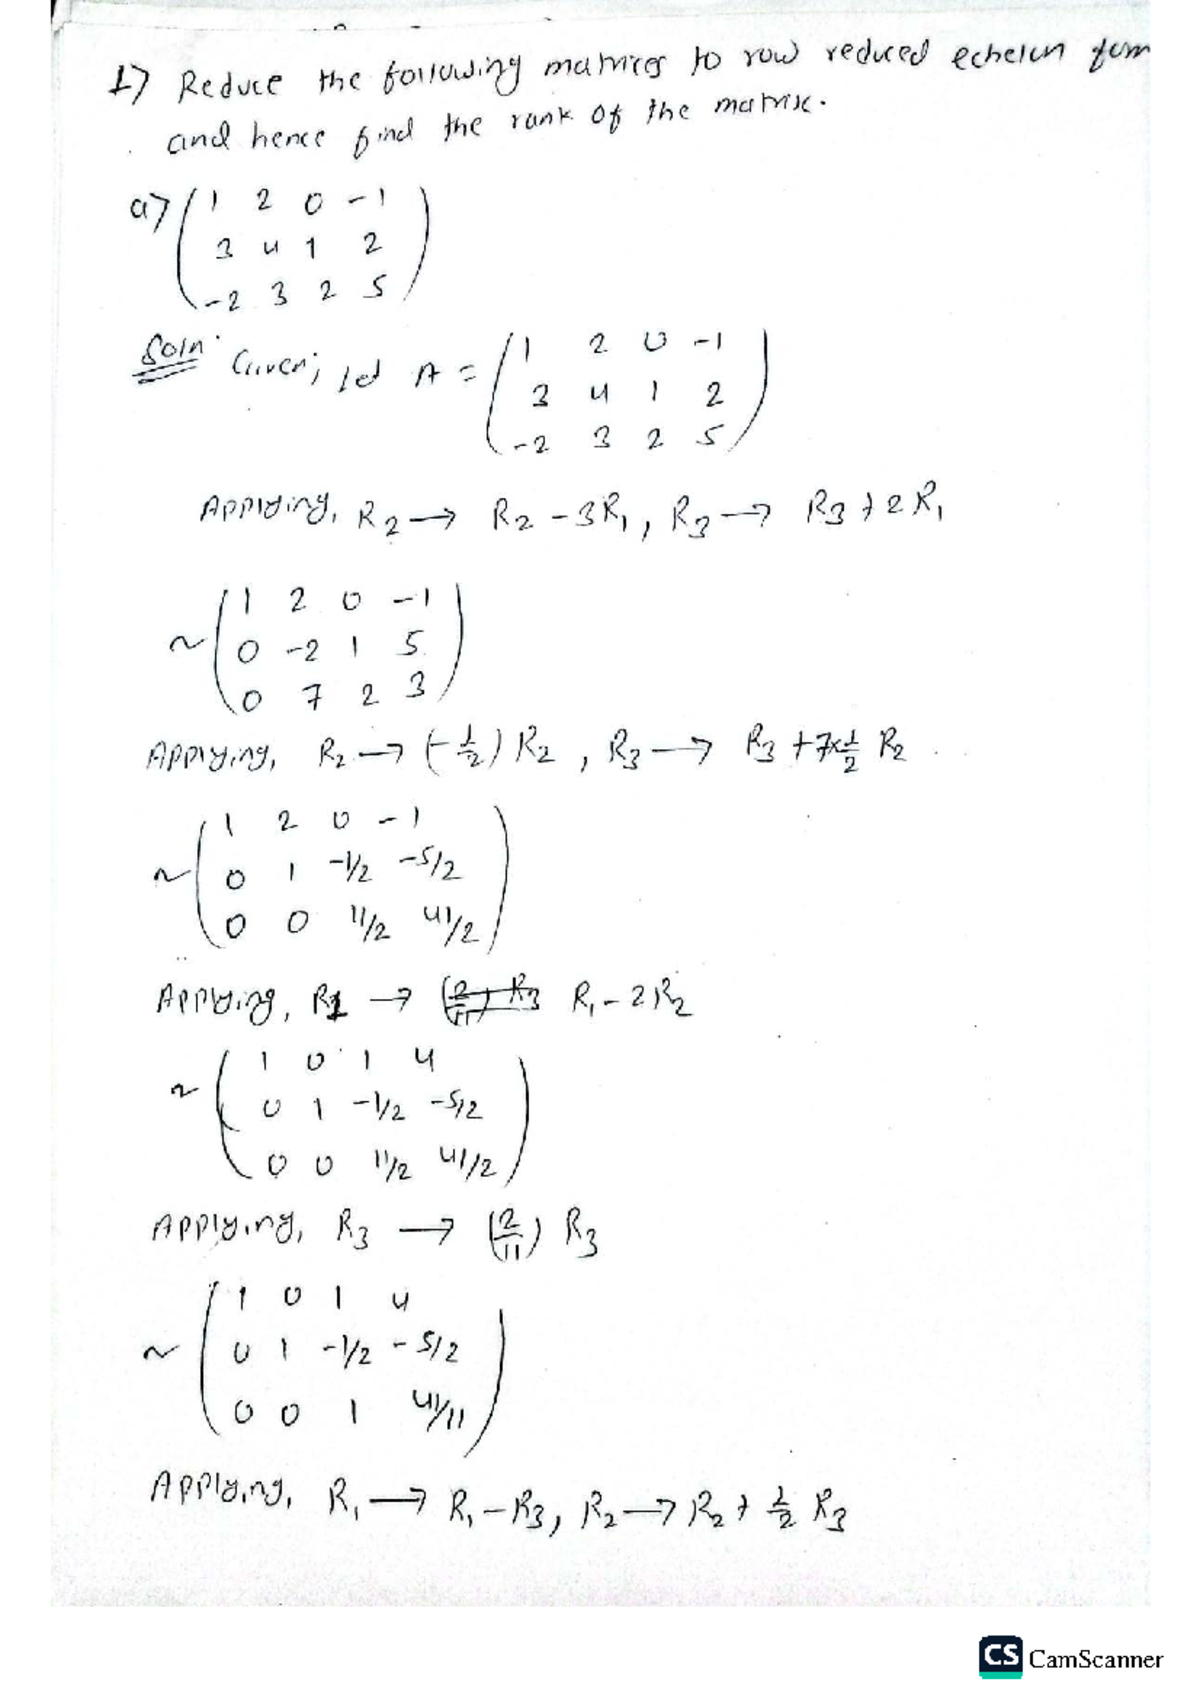 1) Reduce the following matrices to row reduced echelon form
and hence find the rank of the matrix.
a) ( 1 2 0 -1
3 4 1 2
-2 3 2 5 )
Soln. Given; let A = ( 1 2 0 -1
3 4 1 2
-2 3 2 5 )
Applying, R2 → R2 - 3R1, R3 → R3 + 2R1
~ ( 1 2 0 -1
0 -2 1 5
0 7 2 3 )
Applying, R2 → (-1/2) R2, R3 → R3 + 7×1/2 R2
~ ( 1 2 0 -1
0 1 -1/2 -5/2
0 0 11/2 41/2 )
Applying, R1 → (2/11) R3 R1 - 2R2
~ ( 1 0 1 4
0 1 -1/2 -5/2
0 0 11/2 41/2 )
Applying, R3 → (2/11) R3
~ ( 1 0 1 4
0 1 -1/2 -5/2
0 0 1 41/11 )
Applying, R1 → R1 - R3, R2 → R2 + 1/2 R3
CS CamScanner